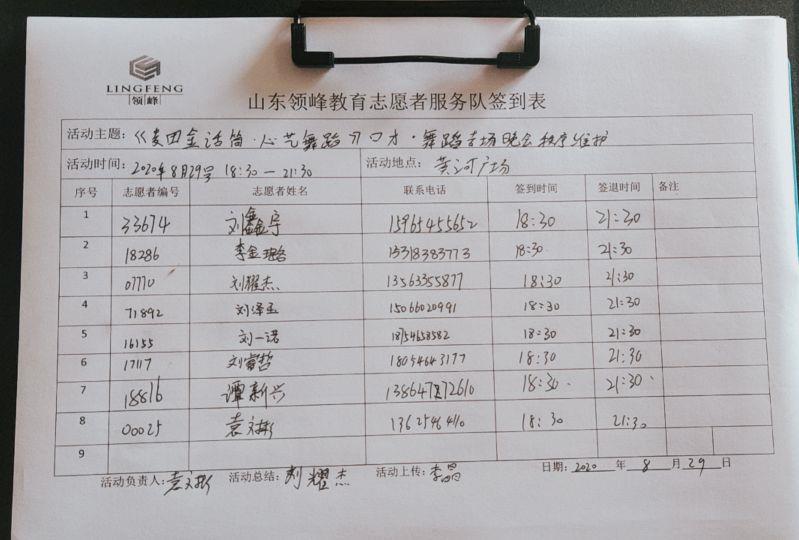 LINGFENG
领峰
山东领峰教育志愿者服务队签到表
活动主题: 《麦田金话筒·心艺舞蹈》口才·舞蹈专场晚会秩序维护
活动时间: 2020年8月29号 18:30—21:30 活动地点: 黄河广场
序号 志愿者编号 志愿者姓名 联系电话 签到时间 签退时间 备注
1 33674 刘鑫宇 15965455652 18:30 21:30
2 18286 李金璐 15318383773 18:30 21:30
3 07770 刘耀杰 13563355877 18:30 21:30
4 71892 刘泽孟 15066020991 18:30 21:30
5 16155 刘一诺 18754658582 18:30 21:30
6 17117 18054643177 18:30 21:30
7 18816 谭新兴 18:30 21:30
8 00025 袁文彬 18:30 21:30
9
活动负责人: 袁文彬 活动总结: 刘耀杰 活动上传: 李晶 日期: 2020 年 8 月 29 日